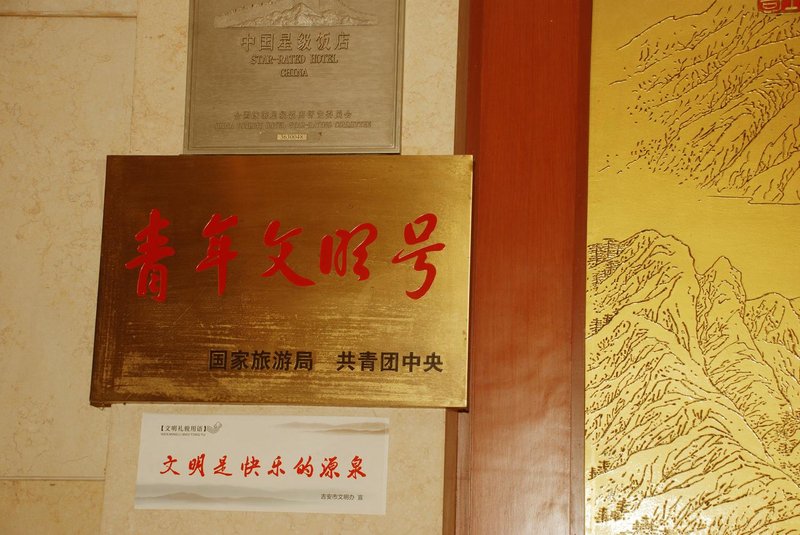 中国星级饭店
STAR-RATED HOTEL
CHINA
全国旅游星级饭店评定委员会
CHINA TOURIST HOTEL STAR-RATING COMMITTEE
青年文明号
国家旅游局 共青团中央
【文明礼貌用语】
WENMINGLIMAOYONGYU
文明是快乐的源泉
吉安市文明办 宣